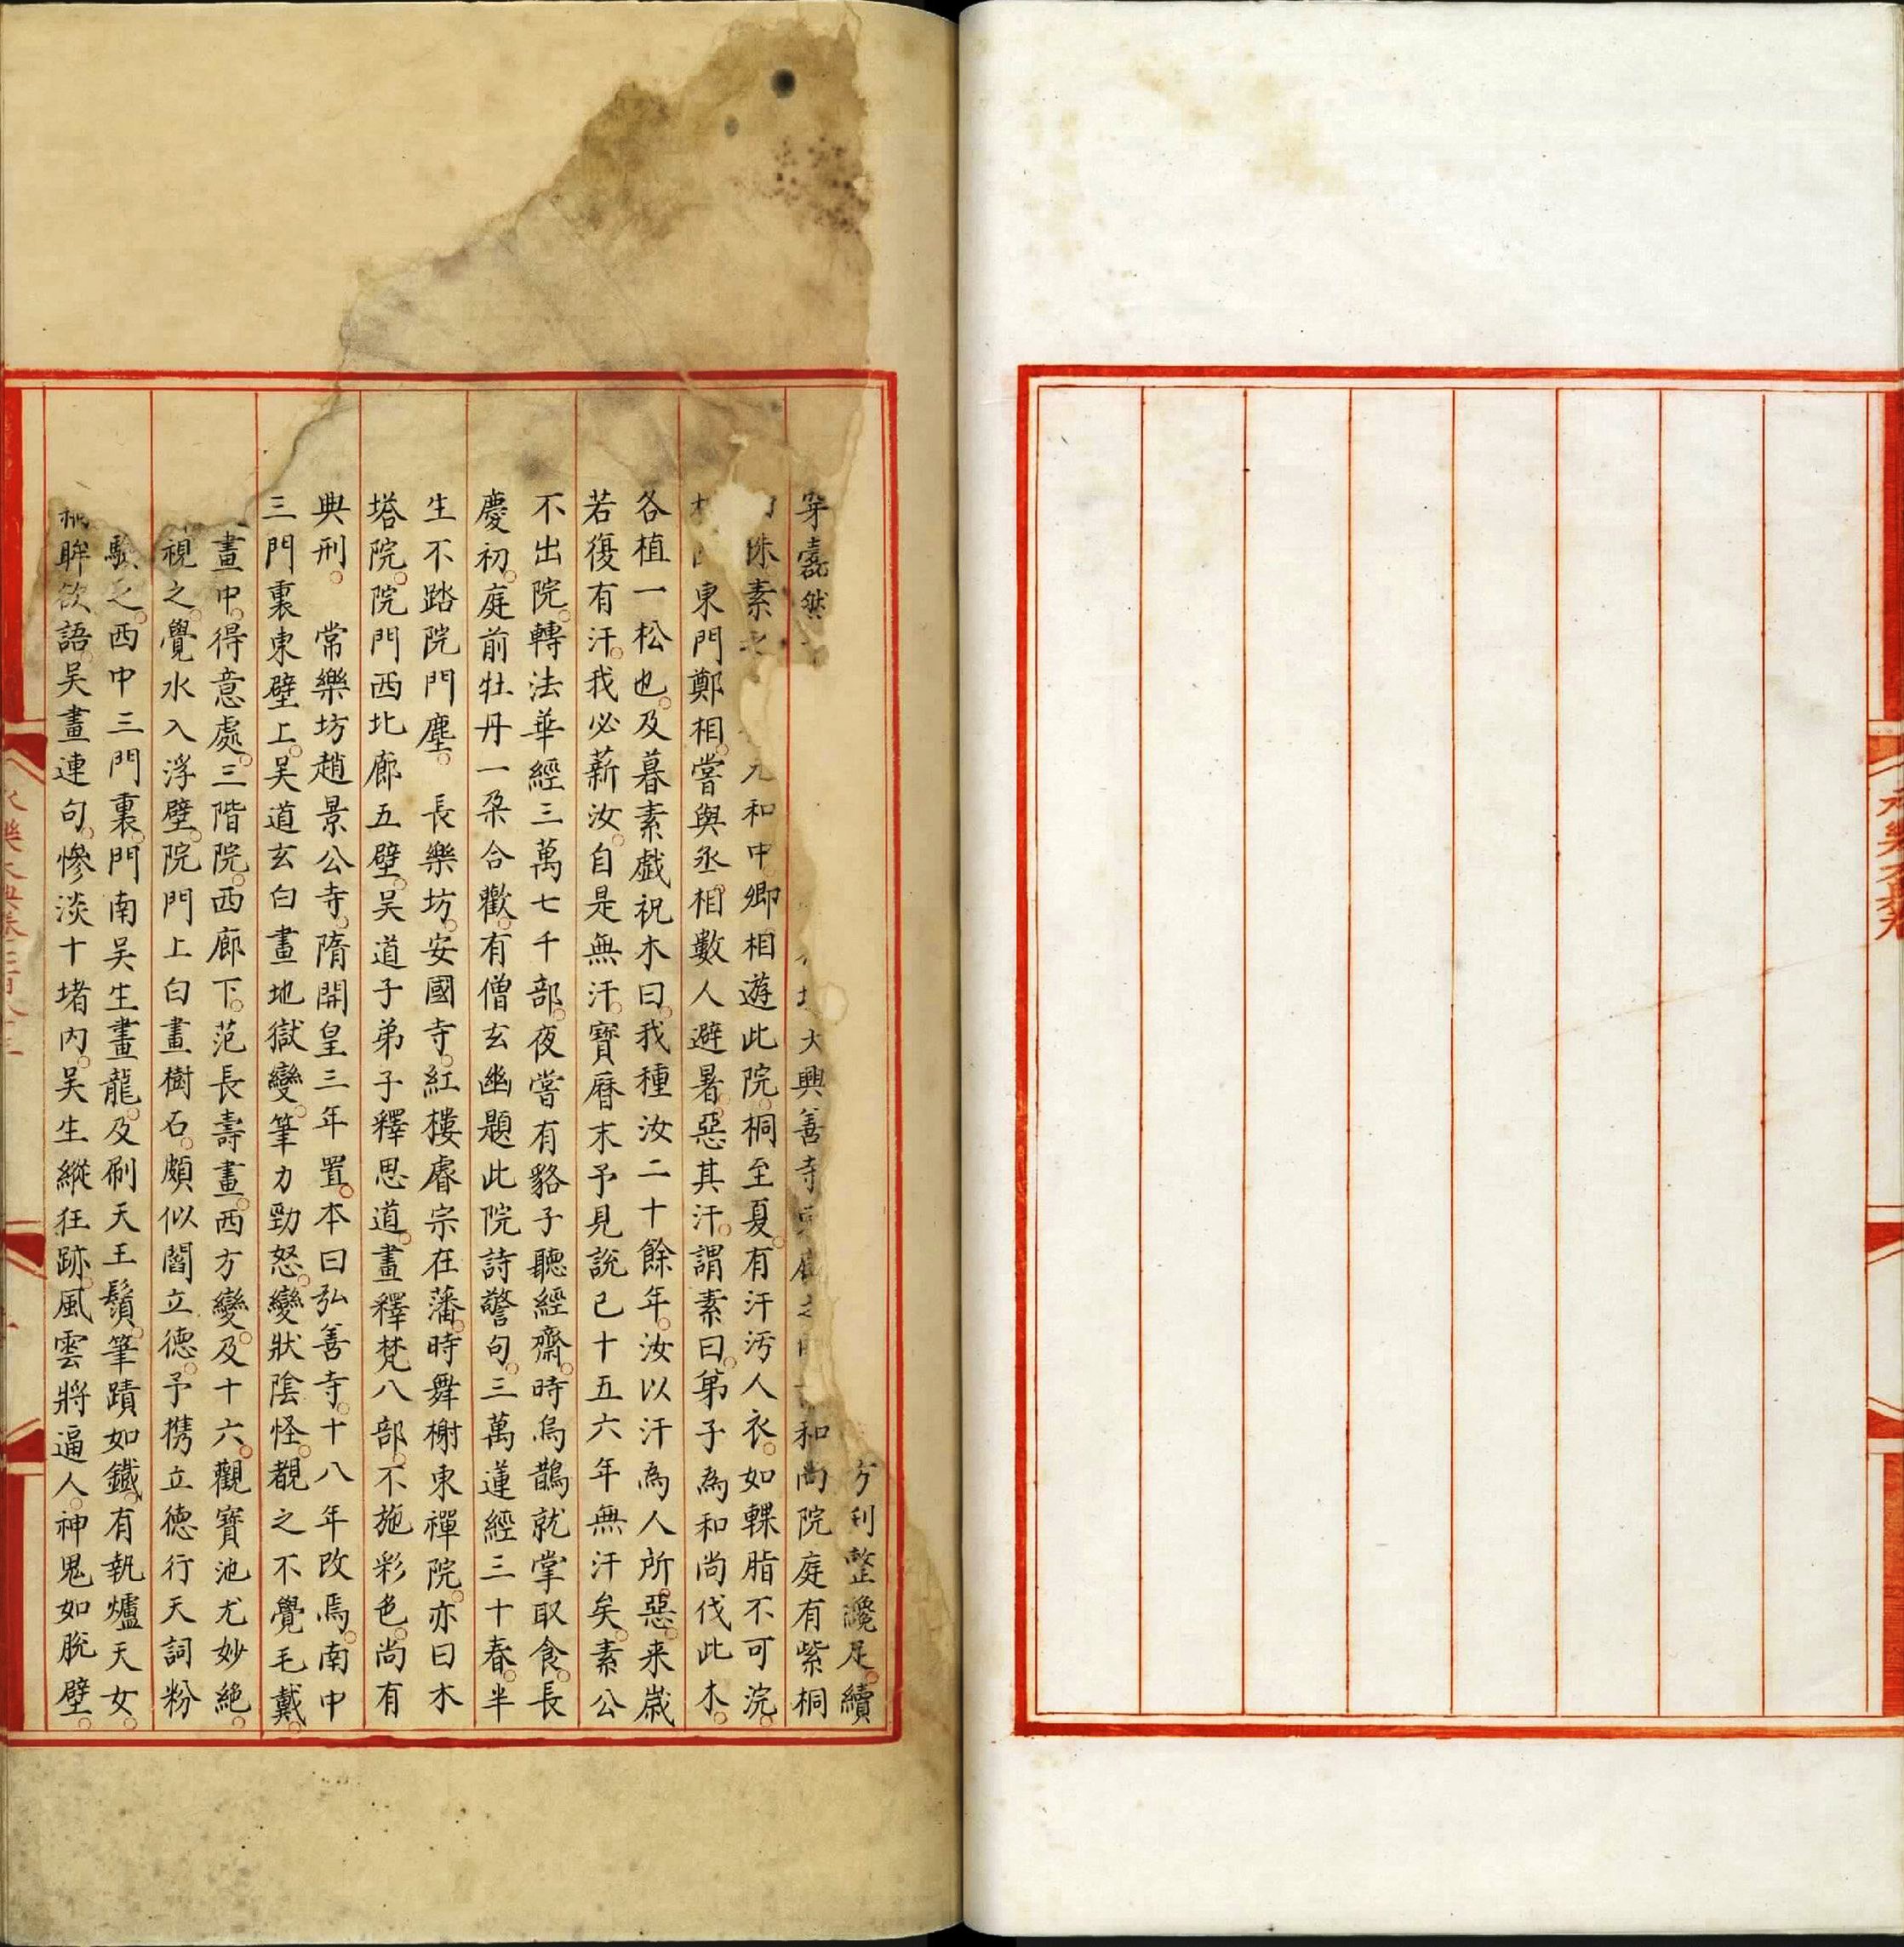 永樂大典卷
利整纔足續
穿 然 大興善寺 和尚院庭有紫桐
素 和中卿相遊此院桐至夏有汗汚人衣如輠脂不可浣
東門鄭相嘗與丞相數人避暑惡其汗謂素曰弟子為和尚伐此木
各植一松也及暮素戲祝木曰我種汝二十餘年汝以汗為人所惡来歲
若復有汗我必薪汝自是無汗寶曆末予見說已十五六年無汗矣素公
不出院轉法華經三萬七千部夜嘗有貉子聽經齋時烏鵲就掌取食長
慶初庭前牡丹一朶合歡有僧玄幽題此院詩警句三萬蓮經三十春半
生不踏院門塵 長樂坊安國寺紅樓睿宗在藩時舞榭東禪院亦曰木
塔院院門西北廊五壁吳道子弟子釋思道畫釋梵八部不施彩色尚有
典刑 常樂坊趙景公寺隋開皇三年置本曰弘善寺十八年改焉南中
三門裏東壁上吳道玄白畫地獄變筆力勁怒變狀陰怪覩之不覺毛戴
畫中得意處三階院西廊下范長壽畫西方變及十六觀寶池尤妙絕
視之覺水入浮壁院門上白畫樹石頗似閻立德予携立德行天詞粉
驗之西中三門裏門南吳生畫龍及刷天王鬚筆蹟如鐵有執爐天女
眸欲語吳畫連句慘淡十堵內吳生縱狂跡風雲將逼人神鬼如脫壁
永樂大典卷